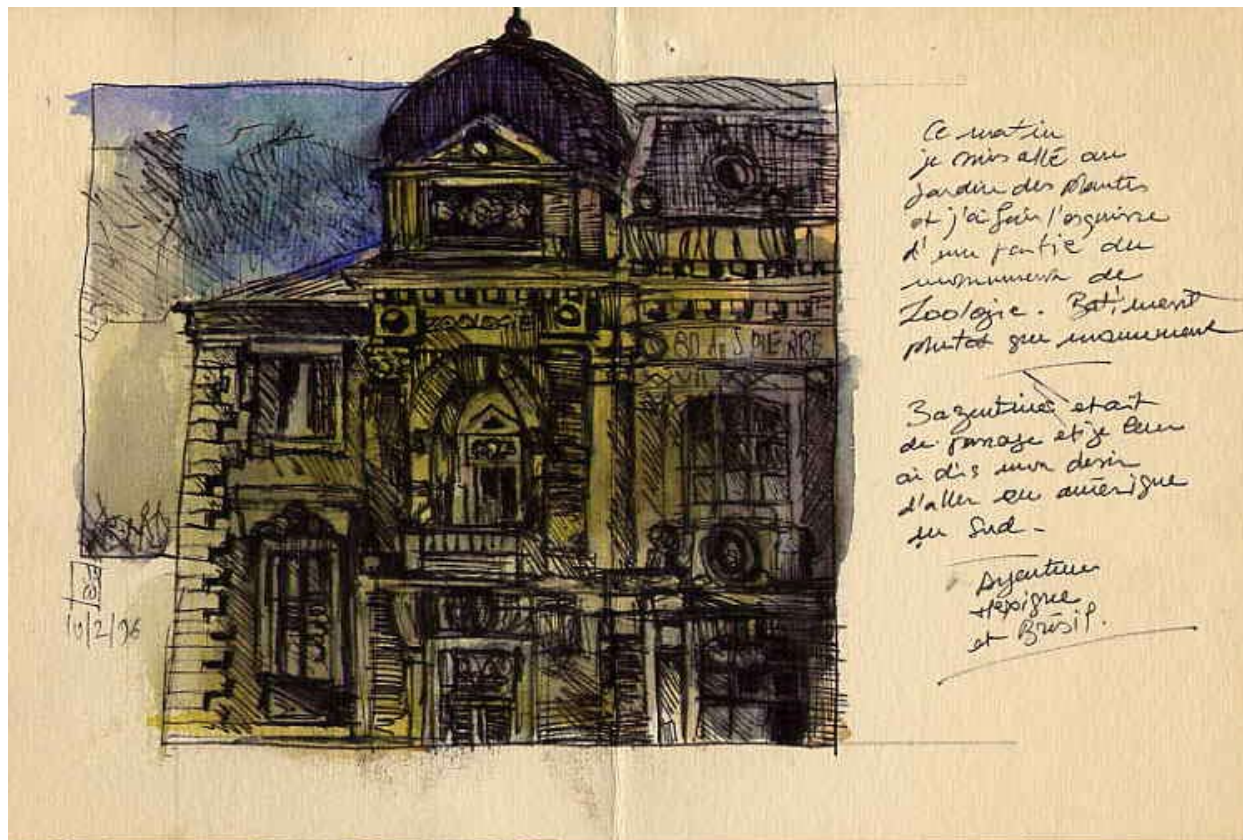 ZOOLOGIE
Ce matin
je suis allé au
Jardin des Plantes
et j'ai fait l'esquisse
d'une partie du
monument de
Zoologie. Batiment
plutot que monument
3 argentines etait
de passage et je leur
ai dis mon desir
d'aller en amérique
du Sud -
Argentine
Mexique
et Brésil.
10/2/96